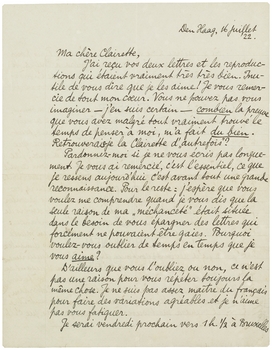 Den Haag, 16 juillet
22.
Ma chère Clairette,
J'ai reçu vos deux lettres et les reproduc-
tions qui étaient vraiment très très bien. Inu-
tile de vous dire que je les aime! Je vous remer-
cie de tout mon cœur. Vous ne pouvez pas vous
imaginer – j'en suis certain – combien la preuve
que vous avez malgré tout vraiment trouvé le
temps de penser à moi, m'a fait du bien.
Retrouverai-je la Clairette d'autrefois?
Pardonnez-moi si je ne vous écris pas longue-
ment. Je vous ai remercié, c'est l'essentiel, ce que
je ressens aujourd'hui c'est avant tout une grande
reconnaissance. Pour le reste: j'espère que vous
voulez me comprendre quand je vous dis que la
seule raison de ma „méchanceté" était située
dans le besoin de vous épargner des lettres qui
forcément ne pouvaient être gaies. Pourquoi
voulez-vous oublier de temps en temps que je
vous aime?
D'ailleurs que vous l'oubliez ou non, ce n'est
pas une raison pour vous répéter toujours la
même chose. Je ne suis pas assez maître du français
pour faire des variations agréables et je n'aime
pas vous fatiguer.
Je serai vendredi prochain vers 1 h. 1/2 à Bruxelles